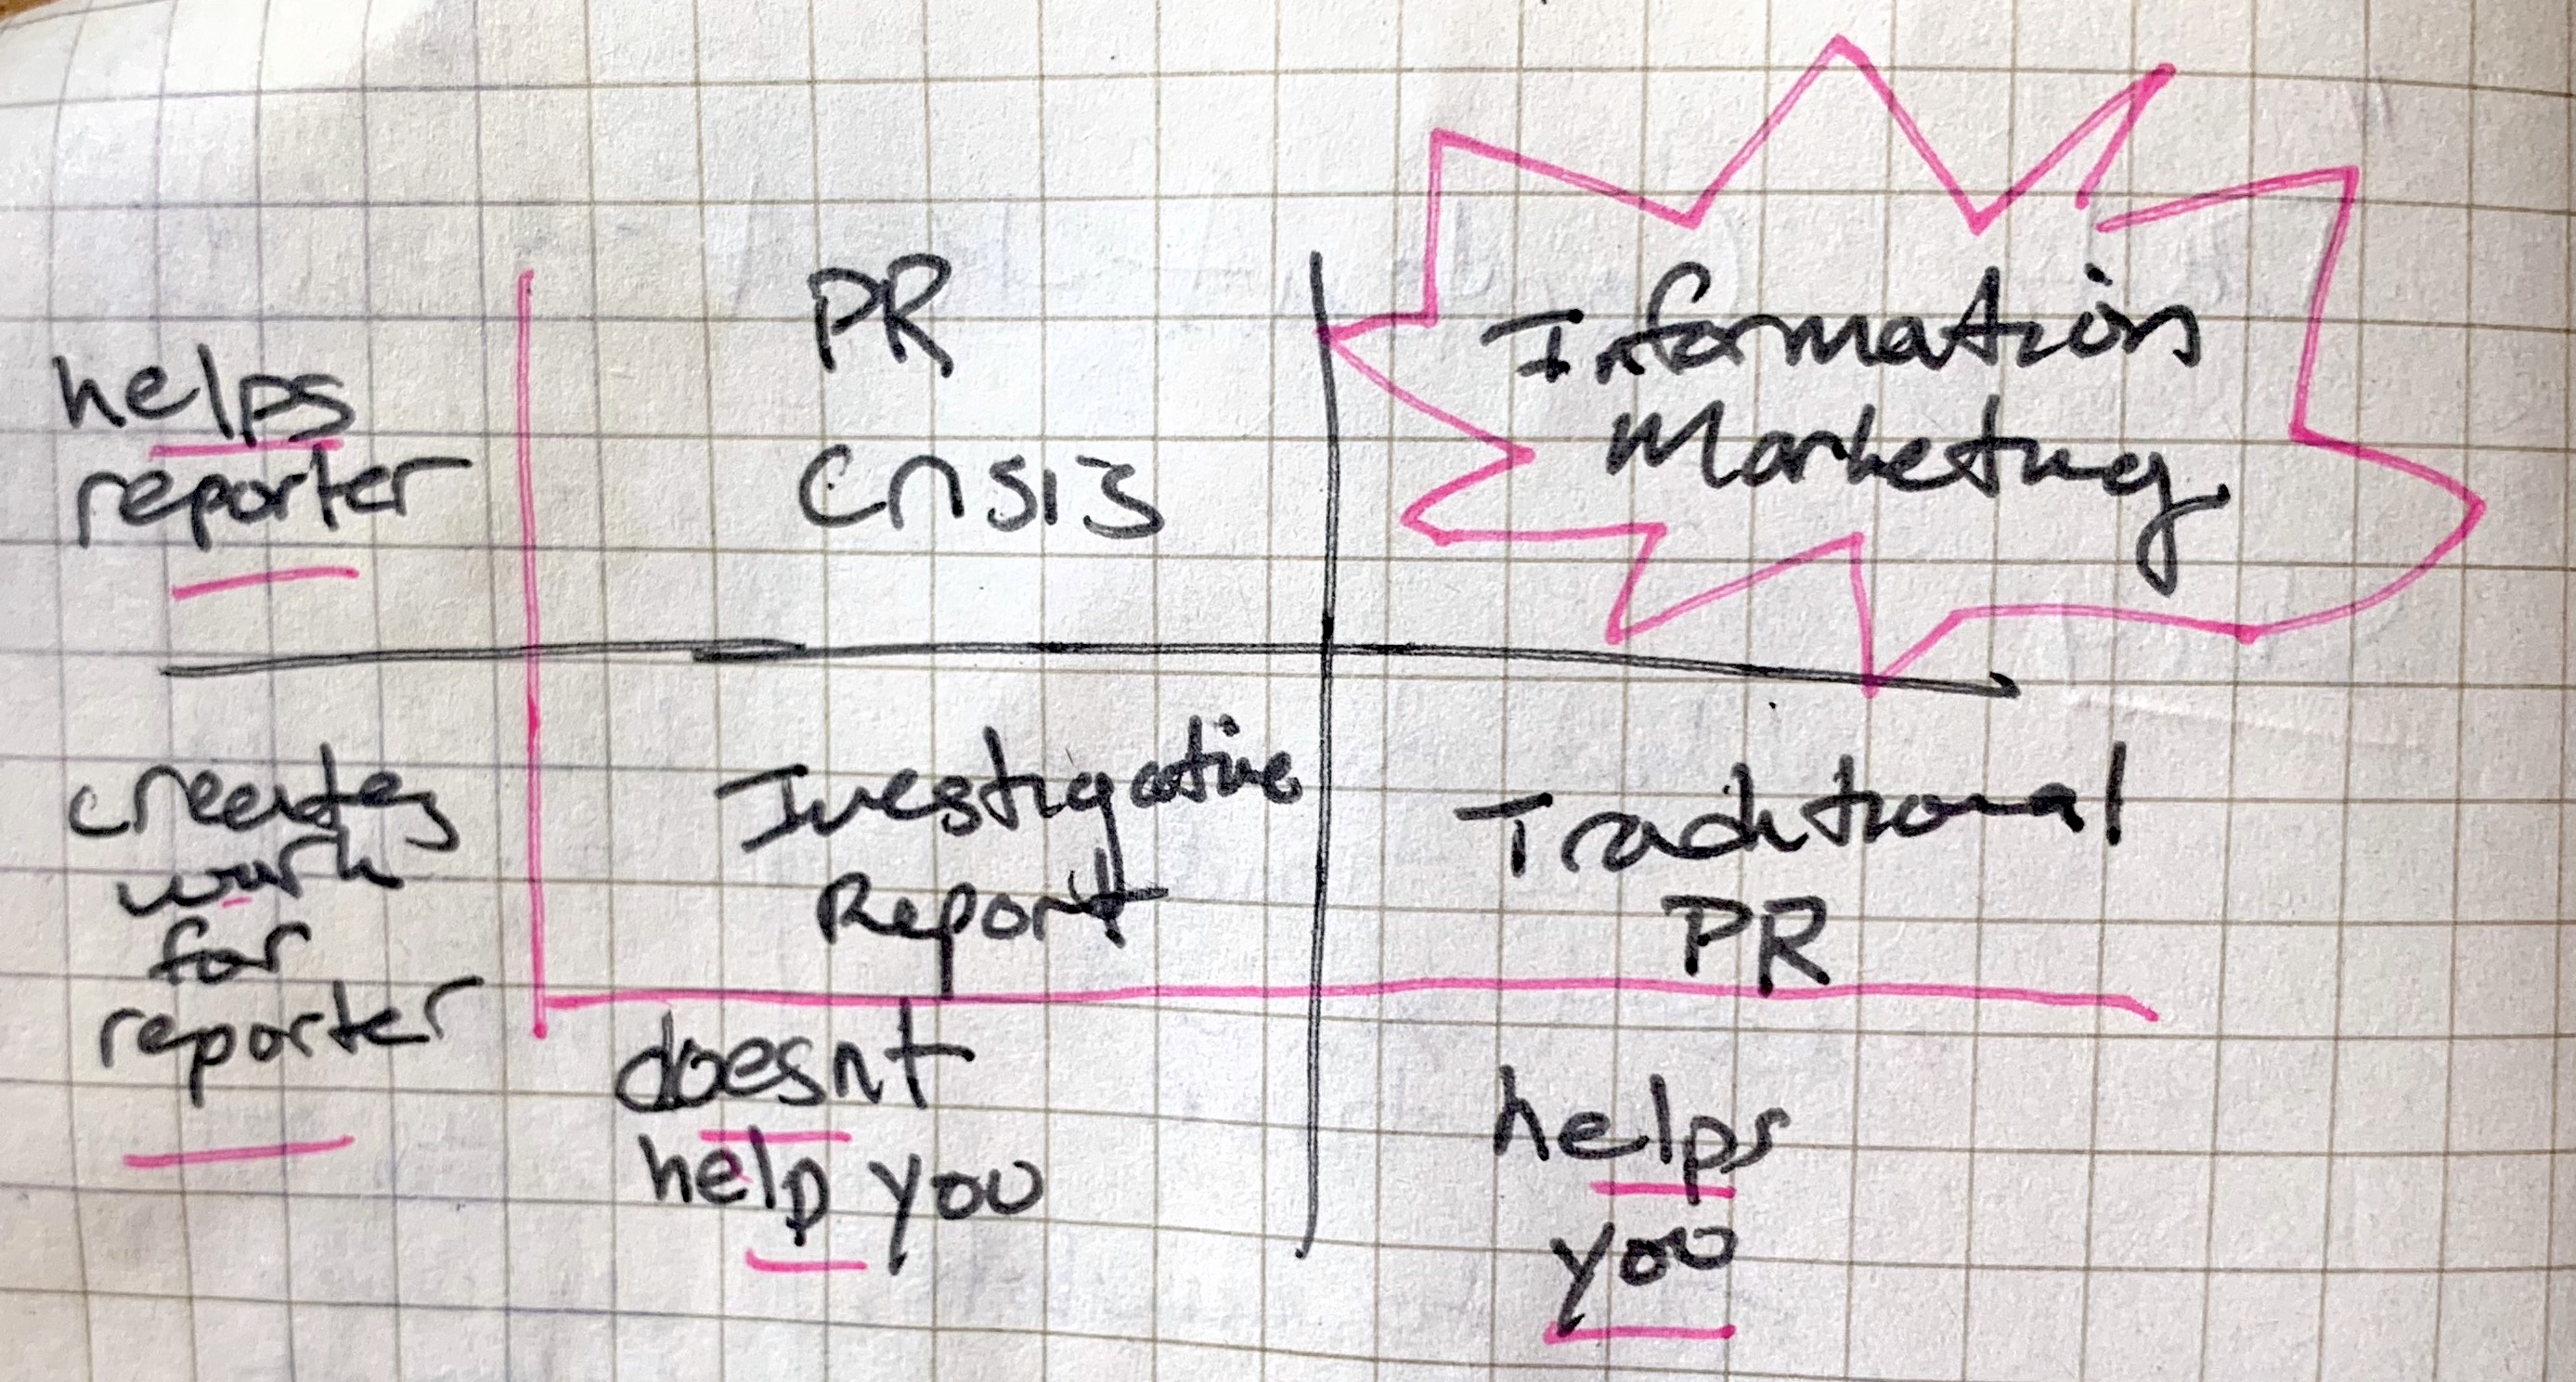 helps
reporter
PR
Crisis
Information
Marketing
creates
work
for
reporter
Investigative
Report
Traditional
PR
doesnt
help you
helps
you